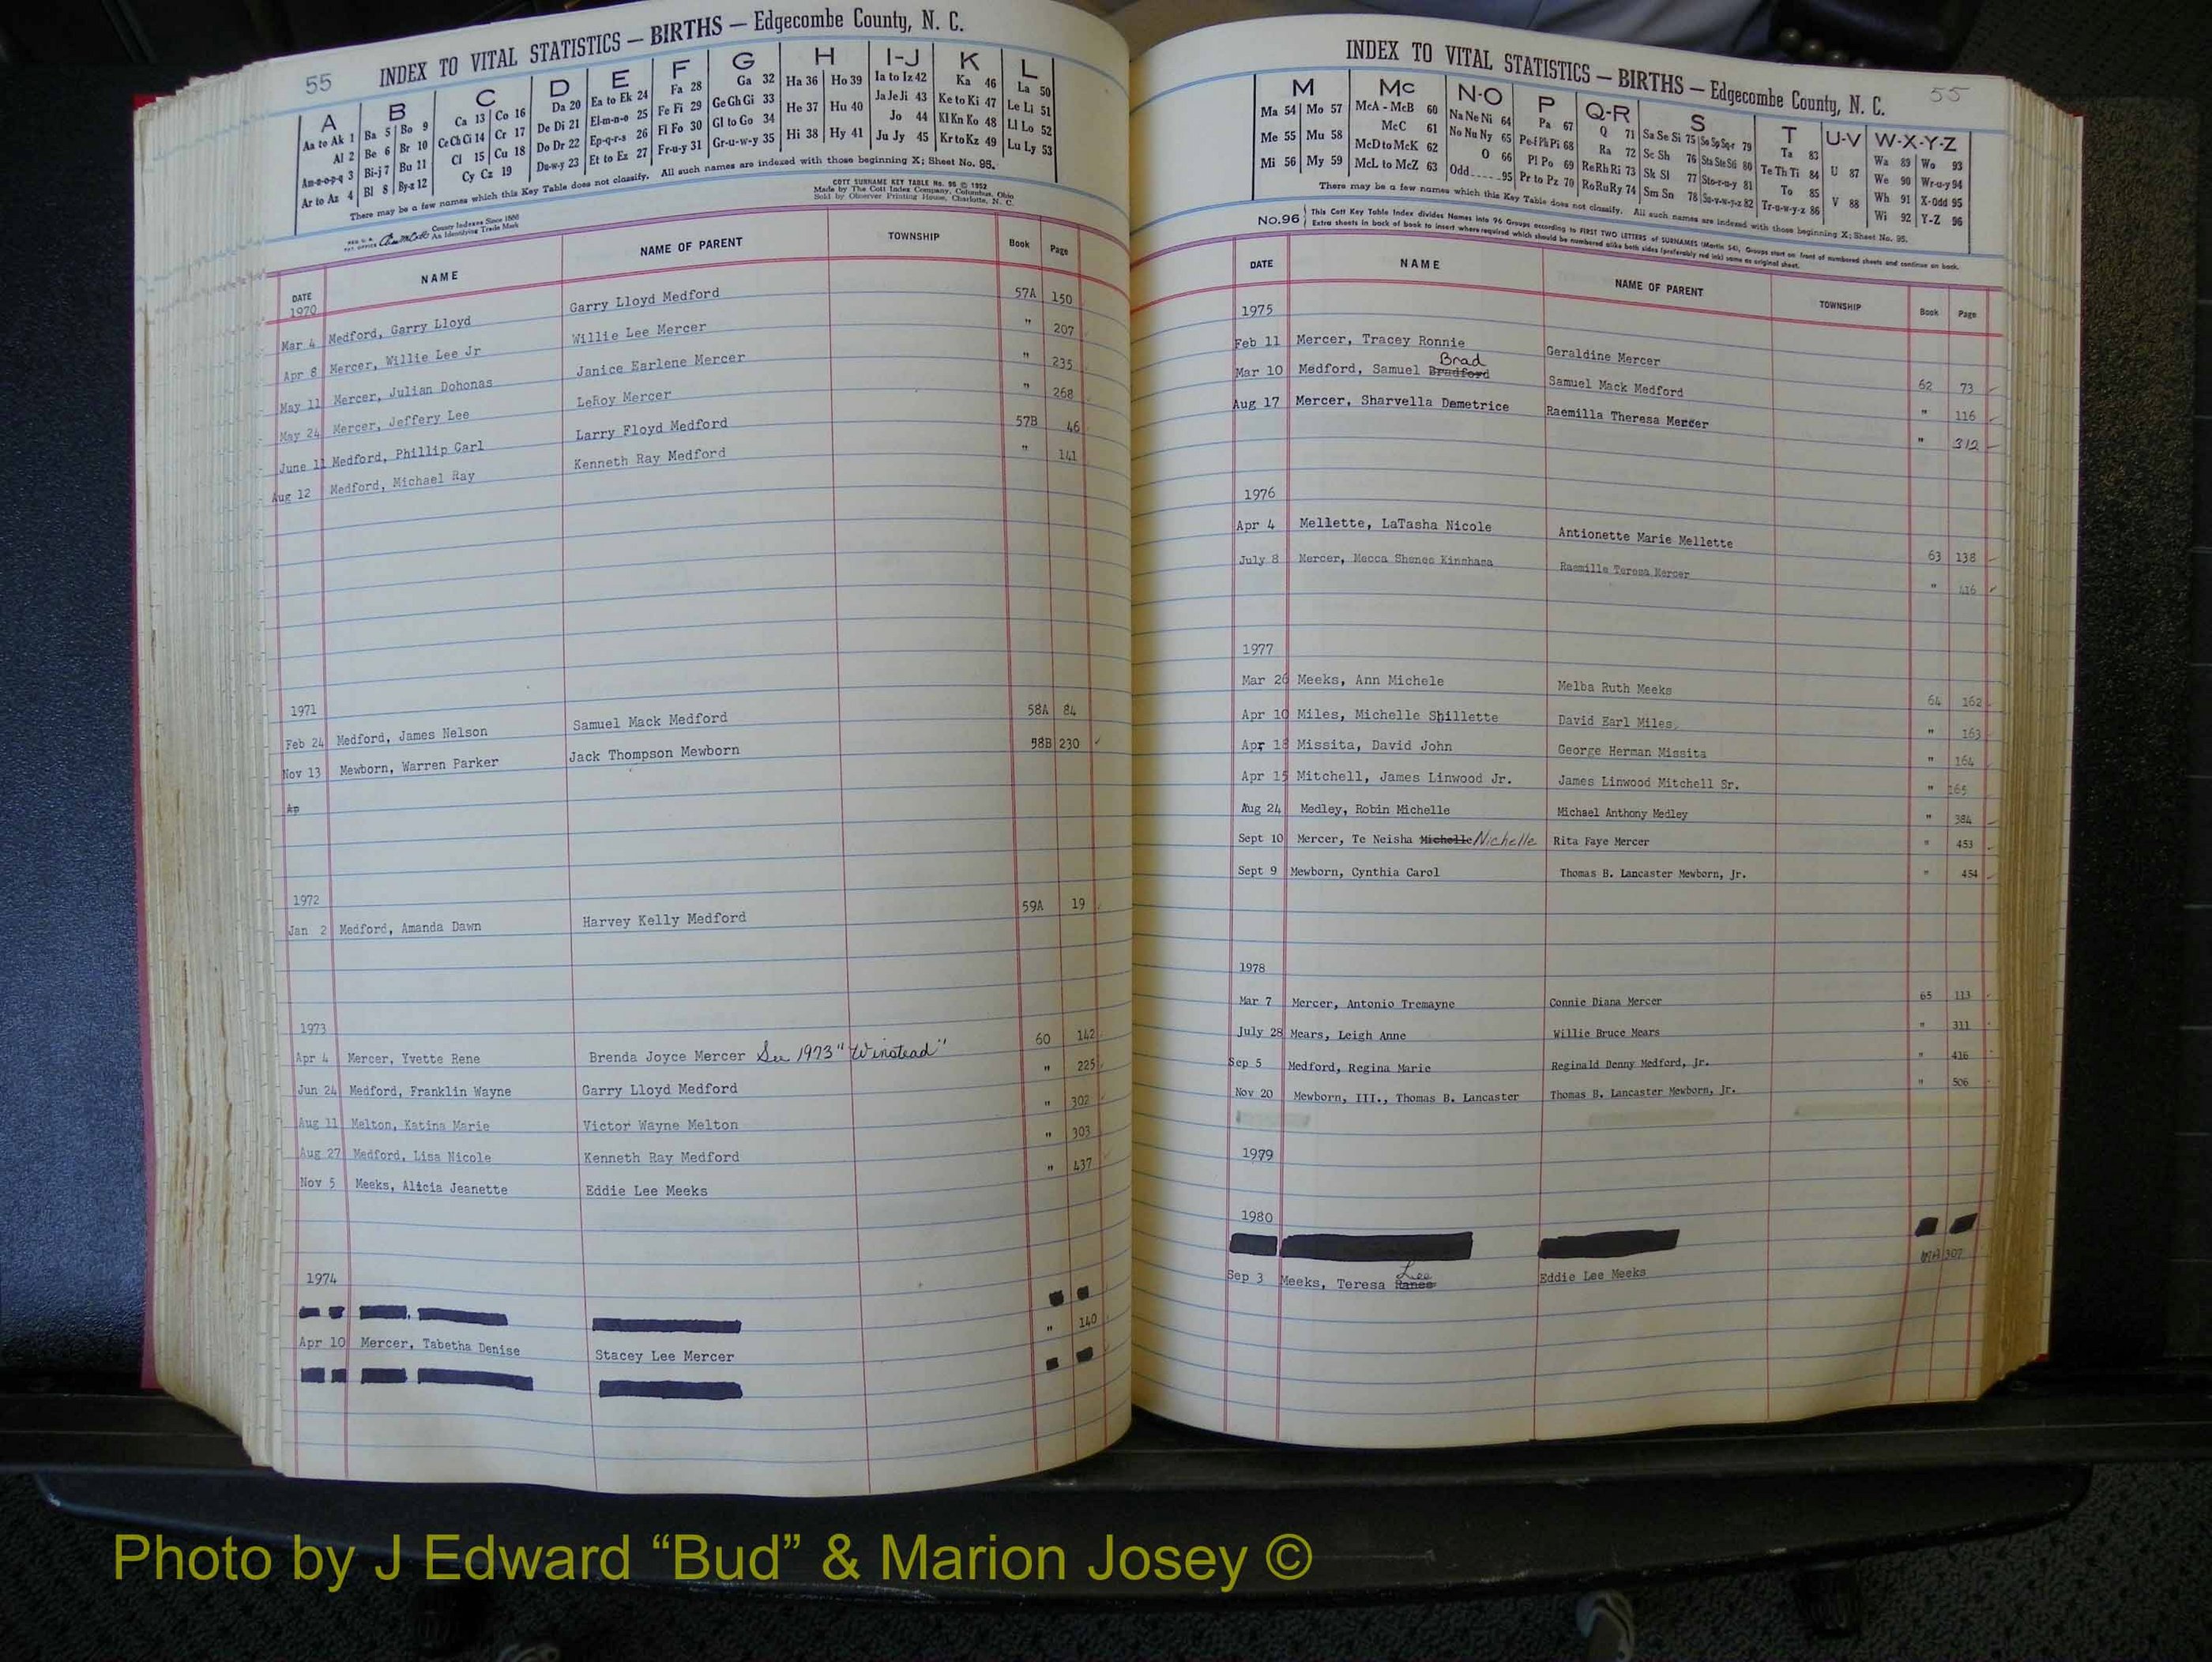 55 INDEX TO VITAL STATISTICS — BIRTHS — Edgecombe County, N. C.
A B C D E F G H I-J K L
Aa to Ak 1 Ba 5 Bo 9 Ca 13 Co 16 Da 20 Ea to Ek 24 Fa 28 Ga 32 Ha 36 Ho 39 Ia to Iz 42 Ka 46 La 50
Al 2 Be 6 Br 10 Ce Ch Ci 14 Cr 17 De Di 21 El-m-n-o 25 Fe Fi 29 Ge Gh Gi 33 He 37 Hu 40 Ja Je Ji 43 Ke to Ki 47 Le Li 51
Am-n-o-p-q 3 Bi-j 7 Bu 11 Cl 15 Cu 18 Do Dr 22 Ep-q-r-s 26 Fl Fo 30 Gl to Go 34 Hi 38 Hy 41 Jo 44 Kl Kn Ko 48 Ll Lo 52
Ar to Az 4 Bl 8 By-z 12 Cy Cz 19 Du-w-y 23 Et to Ez 27 Fr-u-y 31 Gr-u-w-y 35 Ju Jy 45 Kr to Kz 49 Lu Ly 53
There may be a few names which this Key Table does not classify. All such names are indexed with those beginning X; Sheet No. 95.
COTT SURNAME KEY TABLE No. 95 © 1952
Made by The Cott Index Company, Columbus, Ohio
Sold by Observer Printing House, Charlotte, N. C.
County Indexes Since 1888
An Identifying Trade Mark
DATE NAME NAME OF PARENT TOWNSHIP Book Page
1970
Mar 4 Medford, Garry Lloyd Garry Lloyd Medford 57A 150
Apr 8 Mercer, Willie Lee Jr Willie Lee Mercer " 207
May 11 Mercer, Julian Dohonas Janice Earlene Mercer " 235
May 24 Mercer, Jeffery Lee LeRoy Mercer " 268
June 11 Medford, Phillip Carl Larry Floyd Medford 57B 46
Aug 12 Medford, Michael Ray Kenneth Ray Medford " 141
1971
Feb 24 Medford, James Nelson Samuel Mack Medford 58A 84
Nov 13 Mewborn, Warren Parker Jack Thompson Mewborn 58B 230
Ap
1972
Jan 2 Medford, Amanda Dawn Harvey Kelly Medford 59A 19
1973
Apr 4 Mercer, Yvette Rene Brenda Joyce Mercer See 1973 "Winstead" 60 142
Jun 24 Medford, Franklin Wayne Garry Lloyd Medford " 225
Aug 11 Melton, Katina Marie Victor Wayne Melton " 302
Aug 27 Medford, Lisa Nicole Kenneth Ray Medford " 303
Nov 5 Meeks, Alicia Jeanette Eddie Lee Meeks " 437
1974
Apr 10 Mercer, Tabetha Denise Stacey Lee Mercer " 140
INDEX TO VITAL STATISTICS — BIRTHS — Edgecombe County, N. C. 55
M Mc N-O P Q-R S T U-V W-X-Y-Z
Ma 54 Mo 57 McA - McB 60 Na Ne Ni 64 Pa 67 Q 71 Sa Se Si 75 So Sp Sq-r 79 Ta 83 U 87 Wa 89 Wo 93
Me 55 Mu 58 McC 61 No Nu Ny 65 Pe-f Ph Pi 68 Ra 72 Sc Sh 76 Sta Ste Sti 80 Te Th Ti 84 V 88 We 90 Wr-u-y 94
Mi 56 My 59 McD to McK 62 O 66 Pl Po 69 Re Rh Ri 73 Sk Sl 77 Sto-r-u-y 81 To 85 Wh 91 X-Odd 95
McL to McZ 63 Odd 95 Pr to Pz 70 Ro Ru Ry 74 Sm Sn 78 Su-v-w-y-z 82 Tr-u-w-y-z 86 Wi 92 Y-Z 96
There may be a few names which this Key Table does not classify. All such names are indexed with those beginning X; Sheet No. 95.
No. 96 This Cott Key Table Index divides Names into 96 Groups according to FIRST TWO LETTERS of SURNAMES (Martin 54), Groups start on front of numbered sheets and continue on back.
Extra sheets in back of book to insert where required which should be numbered alike both sides (preferably red ink) same as original sheet.
DATE NAME NAME OF PARENT TOWNSHIP Book Page
1975
Feb 11 Mercer, Tracey Ronnie Geraldine Mercer 62 73
Brad
Mar 10 Medford, Samuel Bradford Samuel Mack Medford " 116
Aug 17 Mercer, Sharvella Demetrice Raemilla Theresa Mercer " 312
1976
Apr 4 Mellette, LaTasha Nicole Antionette Marie Mellette 63 138
July 8 Mercer, Mecca Shenee Kinshasa Raemilla Teresa Mercer "
1977
Mar 26 Meeks, Ann Michele Melba Ruth Meeks 64 162
Apr 10 Miles, Michelle Shillette David Earl Miles " 163
Apr 18 Missita, David John George Herman Missita " 164
Apr 15 Mitchell, James Linwood Jr. James Linwood Mitchell Sr. " 165
Aug 24 Medley, Robin Michelle Michael Anthony Medley " 384
Sept 10 Mercer, Te Neisha Michelle Nichelle Rita Faye Mercer " 453
Sept 9 Mewborn, Cynthia Carol Thomas B. Lancaster Mewborn, Jr. " 454
1978
Mar 7 Mercer, Antonio Tremayne Connie Diana Mercer 65 113
July 28 Mears, Leigh Anne Willie Bruce Mears " 311
Sep 5 Medford, Regina Marie Reginald Denny Medford, Jr. " 416
Nov 20 Mewborn, III., Thomas B. Lancaster Thomas B. Lancaster Mewborn, Jr. " 506
1979
1980
Lee
Sep 3 Meeks, Teresa Renee Eddie Lee Meeks 307
Photo by J Edward “Bud” & Marion Josey ©